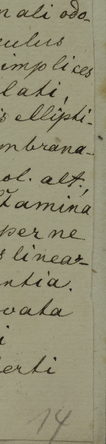 nali odo-
culus
implices
lati,
s ellipti-
mbrana-
ol. alt.,
Stamina
per ne
s linear-
ntia.
vata
i
erti
14